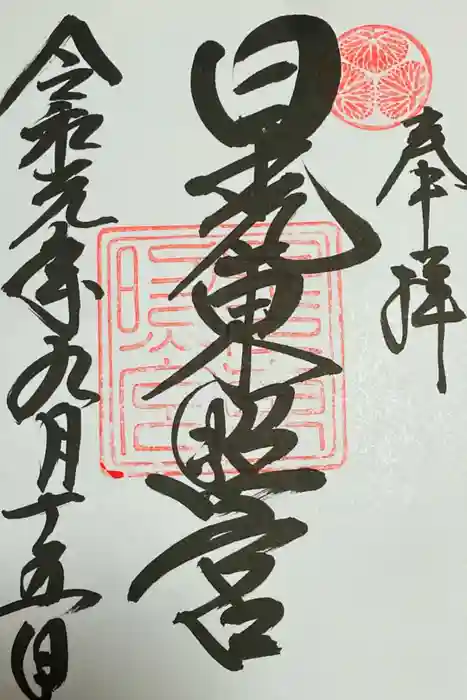 奉拝
日光東照宮
令和元年九月十五日